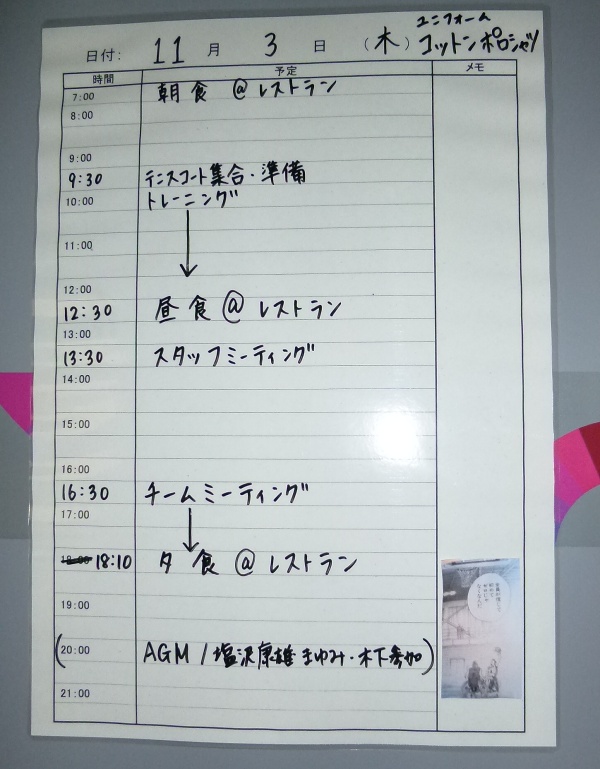 ユニフォーム
日付: 11 月 3 日 (木) コットンポロシャツ
時間 予定 メモ
7:00 朝食 @ レストラン
8:00
9:00
9:30 テニスコート集合・準備
10:00 トレーニング
11:00
12:00
12:30 昼食 @ レストラン
13:00
13:30 スタッフミーティング
14:00
15:00
16:00
16:30 チームミーティング
17:00
18:00 18:10 夕食 @ レストラン
19:00
(20:00 AGM / 塩沢康雄 まゆみ・木下参加)
21:00